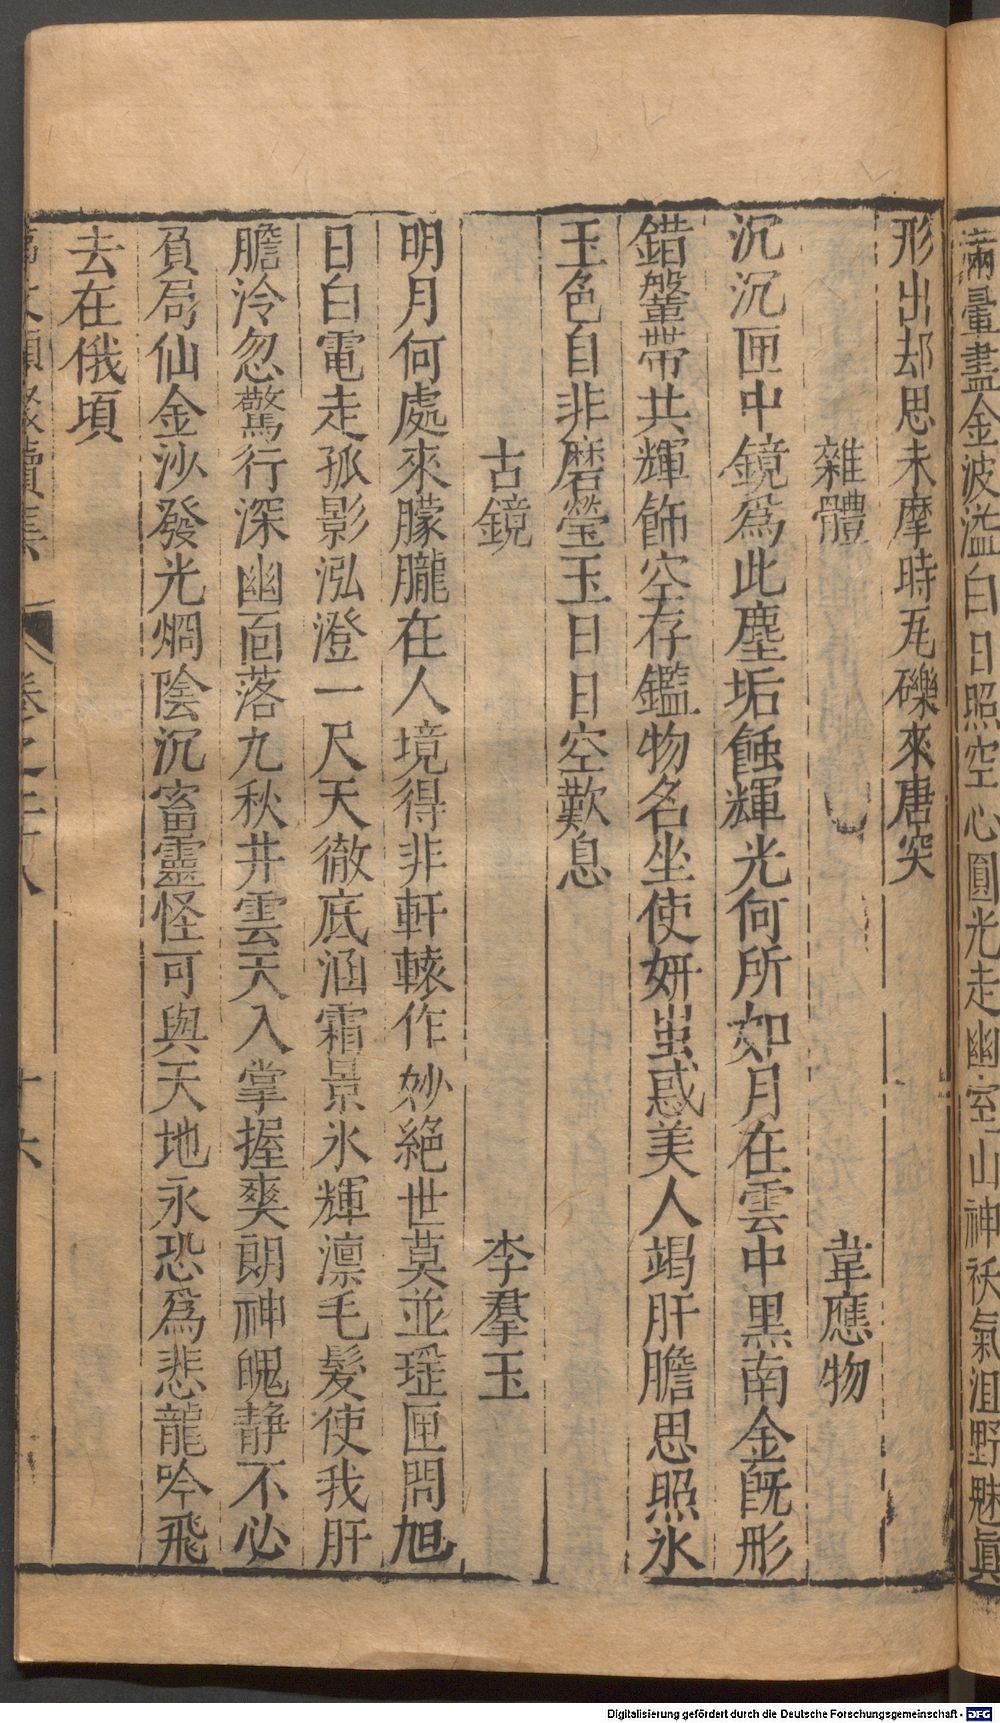 滿暈盡金波溢白日照空心圓光走幽室山神袄氣沮野魅眞
形出却思未摩時瓦礫來唐突
雜體 韋應物
沉沉匣中鏡爲此塵垢蝕輝光何所如月在雲中黑南金旣形
錯鞶帶共輝飾空存鑑物名坐使妍蚩惑美人竭肝膽思照氷
玉色自非磨瑩玉日日空歎息
古鏡 李羣玉
明月何處來朦朧在人境得非軒轅作妙絕世莫並瑶匣問旭
日白電走孤影泓澄一尺天徹底涵霜景氷輝凛毛髮使我肝
膽冷忽驚行深幽靣落九秋井雲天入掌握爽朗神魄静不必
負局仙金沙發光烱陰沉畜靈怪可與天地永恐爲悲龍吟飛
去在俄頃
卷之二十八 十六
Digitalisierung gefördert durch die Deutsche Forschungsgemeinschaft - DFG